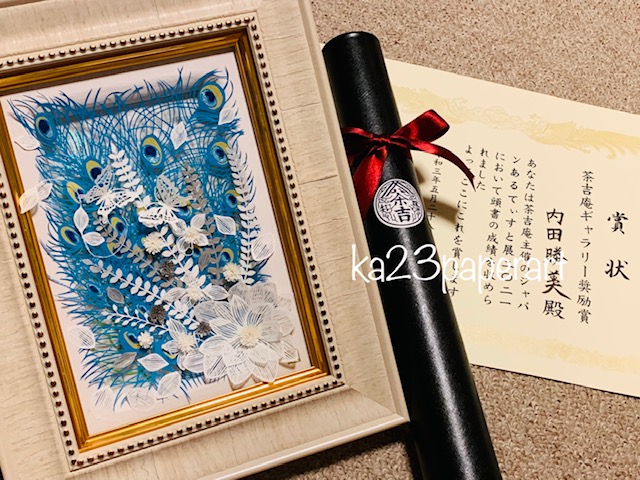 賞状
茶吉庵ギャラリー奨励賞
内田 美殿
あなたは茶吉庵主催ジャパ
ンあるてぃすと展二〇二一
において頭書の成績を収めら
れました
よってここにこれを賞します
和三年五月
茶吉
ka23paperart